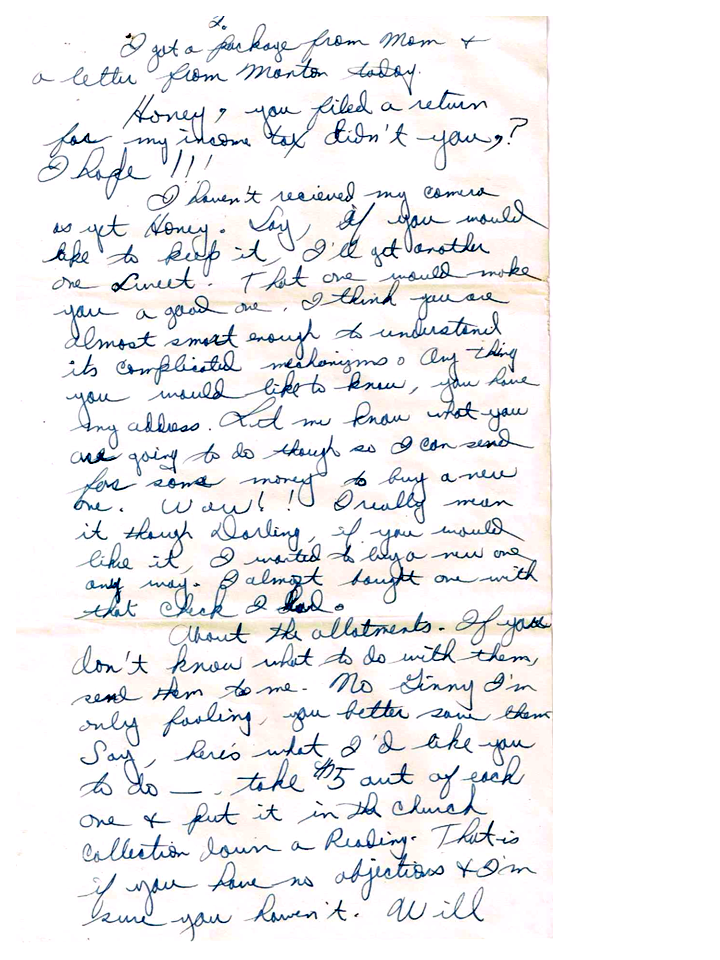 2.
I got a package from Mom &
a letter from Manton today.
Honey, you filed a return
for my income tax didn't you,?
I hope !!!
I haven't recieved my camera
as yet Honey. Say, if you would
like to keep it, I'll get another
one Sweet. That one would make
you a good one. I think you are
almost smart enough to understand
its complicated mechanizms. Any thing
you would like to know, you have
my address. Let me know what you
are going to do though so I can send
for some money to buy a new
one. Wow!! I really mean
it though Darling, if you would
like it, I wanted to buy a new one
any way. I almost bought one with
that check I had.
About the allotments. If you
don't know what to do with them,
send them to me. No Ginny I'm
only fooling, you better save them
Say, here's what I'd like you
to do — . take $5 out of each
one & put it in the church
collection down a Reading. That is
if you have no objections & I'm
sure you haven't. Will